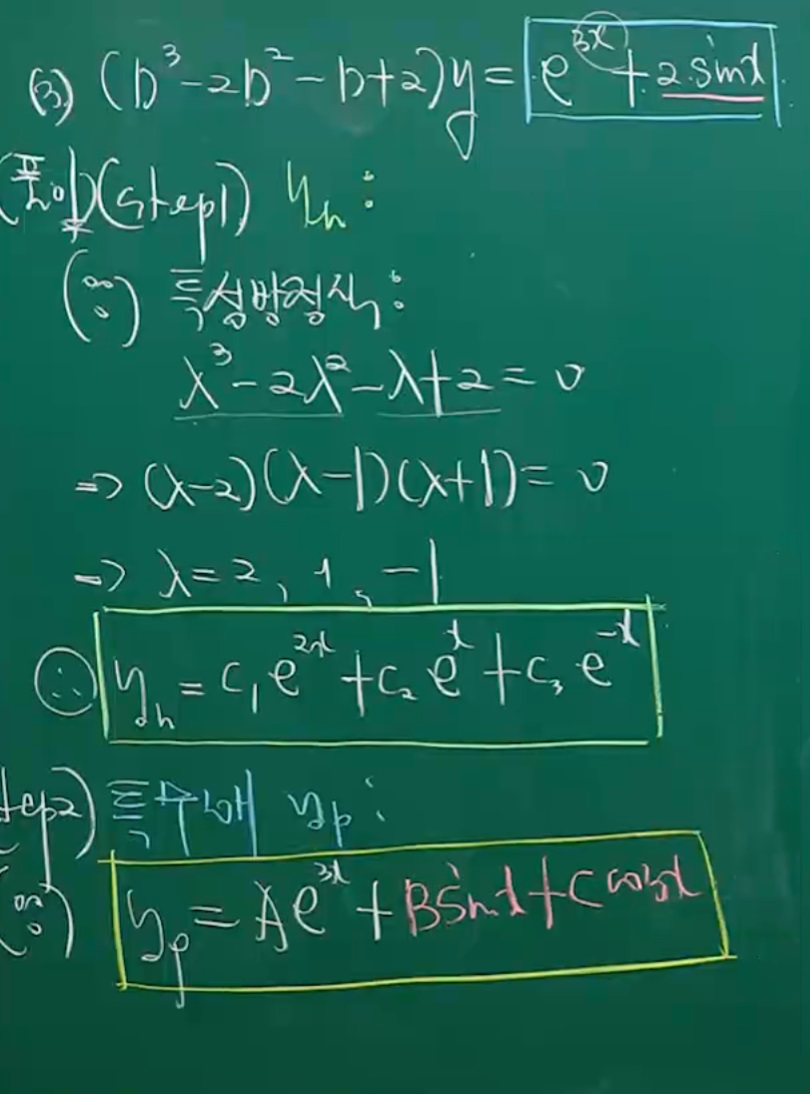 (3) (D³-2D²-D+2)y = e³ˣ+2sinx
(풀이)(step1) yₕ:
(∵) 특성방정식:
λ³-2λ²-λ+2=0
⇒ (λ-2)(λ-1)(λ+1)=0
⇒ λ=2, 1, -1
∴ yₕ = c₁e²ˣ+c₂eˣ+c₃e⁻ˣ
tep2) 특수해 yₚ:
(∵) yₚ = Ae³ˣ+Bsinx+Ccosx